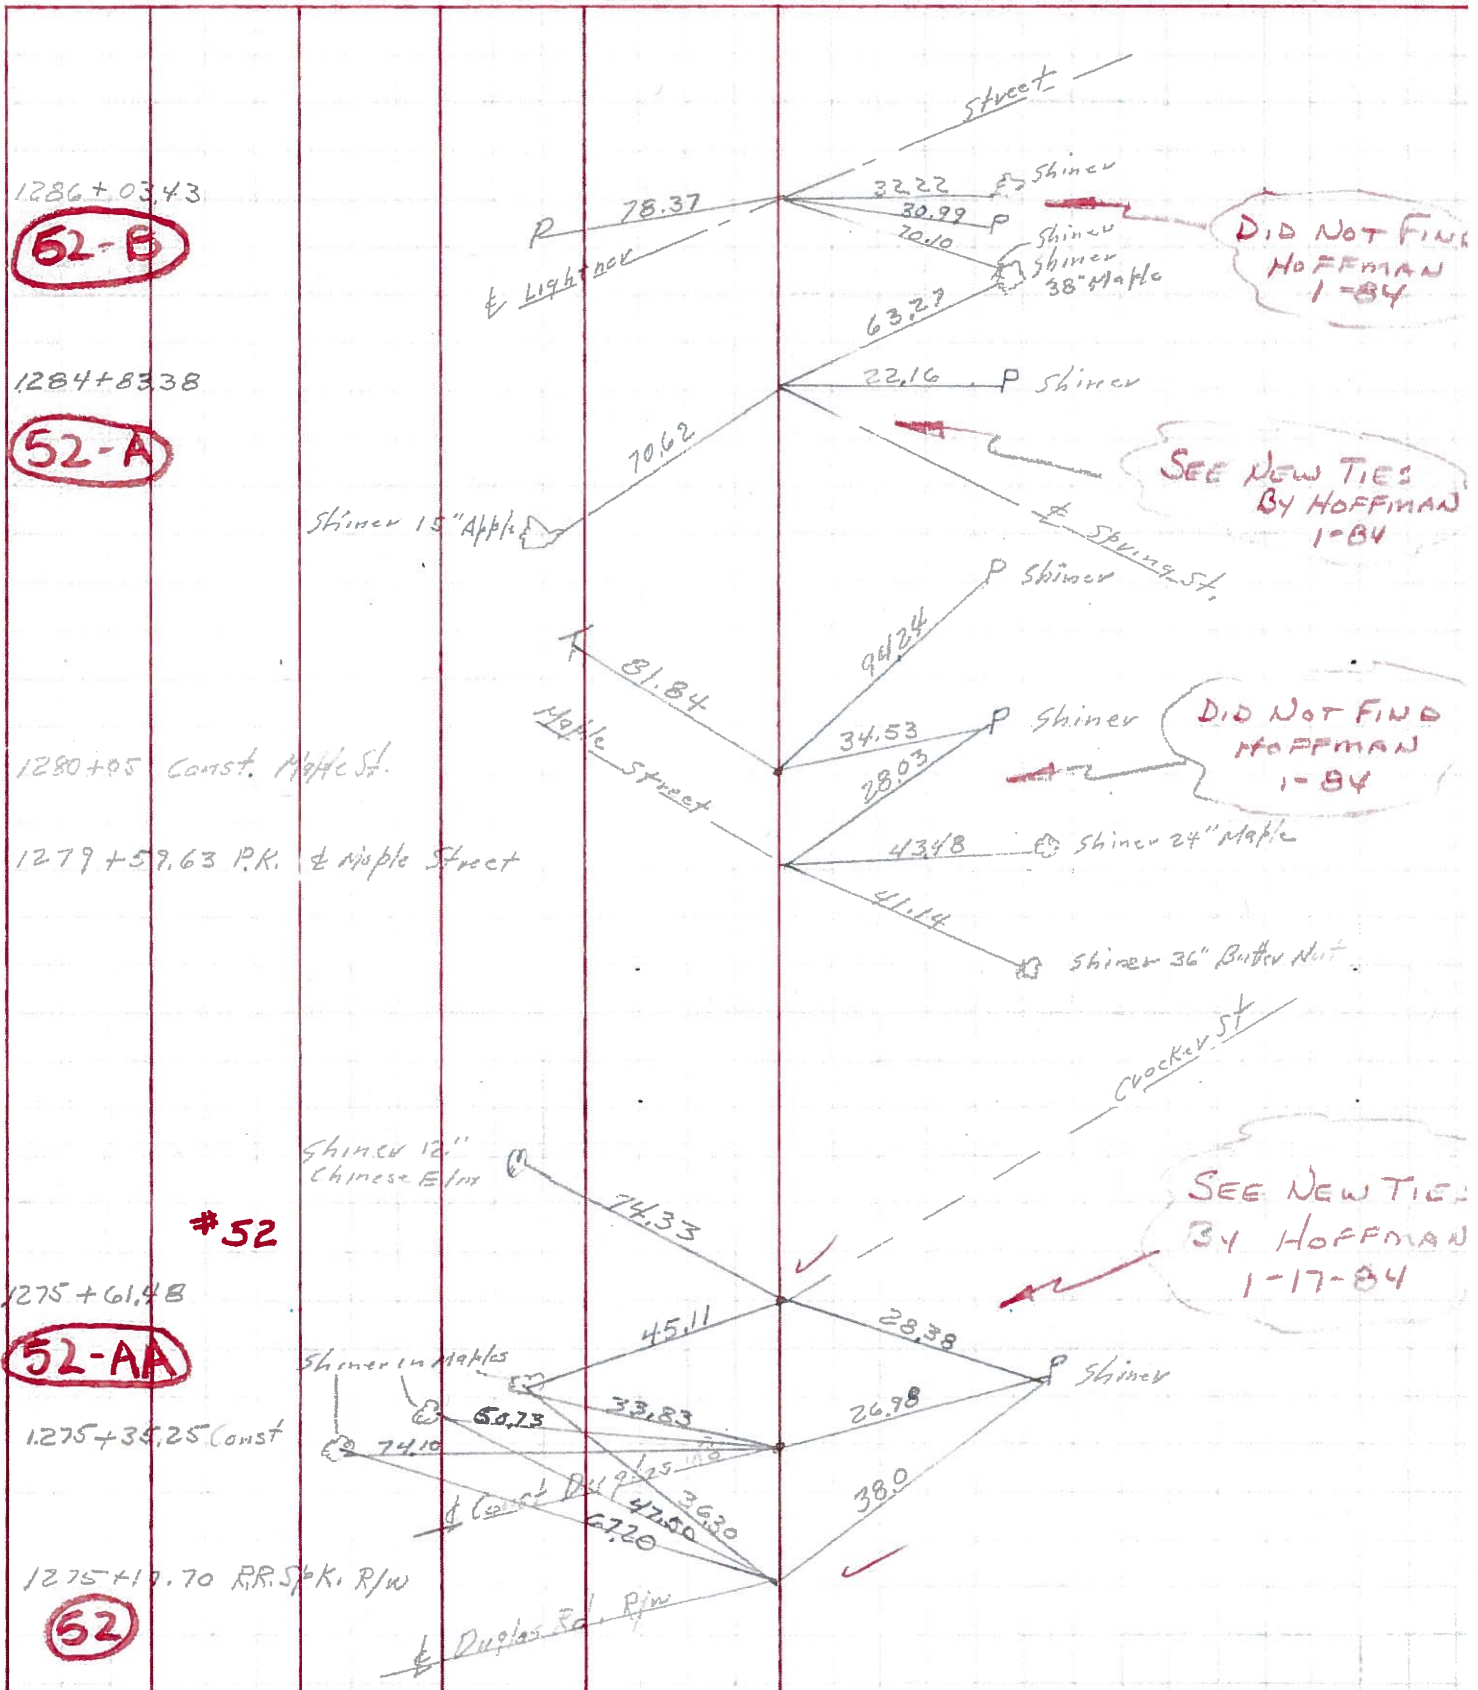 Street
1286+03.43
52-B
78.37
32.22
Shiner
30.99
P
70.10
Shiner
Shiner
38" Maple
P
℄ Lightner
DID NOT FIND
HOFFMAN
1-84
63.27
1284+83.38
22.16
P Shiner
52-A
70.62
SEE NEW TIES
BY HOFFMAN
1-84
Shiner 15" Apple
℄ Spring St.
P Shiner
94.24
81.84
Maple Street
34.53
P Shiner
28.03
DID NOT FIND
HOFFMAN
1-84
1280+05 Const. Maple St.
1279+59.63 P.K. ℄ Maple Street
43.48
Shiner 24" Maple
41.14
Shiner 36" Butter Nut
Crocker St
Shiner 12"
Chinese Elm
74.33
#52
SEE NEW TIES
BY HOFFMAN
1-17-84
1275+61.48
52-AA
45.11
28.38
Shiner in Maples
P Shiner
33.83
26.98
50.73
1275+35.25 Const
74.10
℄ Const
36.30
47.50
67.20
38.0
.70 R.R. Spk. R/W
52
℄ Duglas Rd. R/W